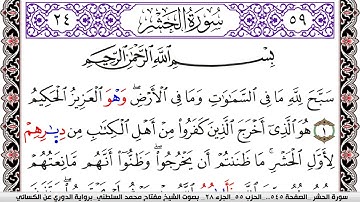 ٥٩ سُورَةُ الْحَشْرِ ٢٤
بِسْمِ اللَّهِ الرَّحْمَٰنِ الرَّحِيمِ
سَبَّحَ لِلَّهِ مَا فِى السَّمَٰوَٰتِ وَمَا فِى الْأَرْضِ ۖ وَهْوَ الْعَزِيزُ الْحَكِيمُ
١ هُوَ الَّذِىٓ أَخْرَجَ الَّذِينَ كَفَرُوا۟ مِنْ أَهْلِ الْكِتَٰبِ مِن دِيَٰرِهِمْ
لِأَوَّلِ الْحَشْرِ ۚ مَا ظَنَنتُمْ أَن يَخْرُجُوا۟ ۖ وَظَنُّوٓا۟ أَنَّهُم مَّانِعَتُهُمْ
سورة الحشر الصفحة ٥٤٥... الحزب ٥٥ الجزء ٢٨ بصوت الشيخ مفتاح محمد السلطني برواية الدوري عن الكسائي